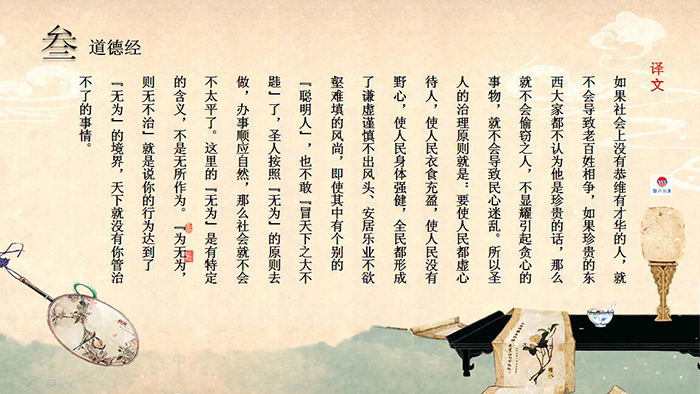 叁 道德经
译文
如果社会上没有恭维有才华的人，就
不会导致老百姓相争，如果珍贵的东
西大家都不认为他是珍贵的话，那么
就不会偷窃之人，不显耀引起贪心的
事物，就不会导致民心迷乱。所以圣
人的治理原则就是：要使人民都虚心
待人，使人民衣食充盈，使人民没有
野心，使人民身体强健，全民都形成
了谦虚谨慎不出风头、安居乐业不欲
壑难填的风尚，即使其中有个别的
『聪明人』，也不敢『冒天下之大不
韪』了，圣人按照『无为』的原则去
做，办事顺应自然，那么社会就不会
不太平了。这里的『无为』是有特定
的含义，不是无所作为。『为无为，
则无不治』就是说你的行为达到了
『无为』的境界，天下就没有你管治
不了的事情。